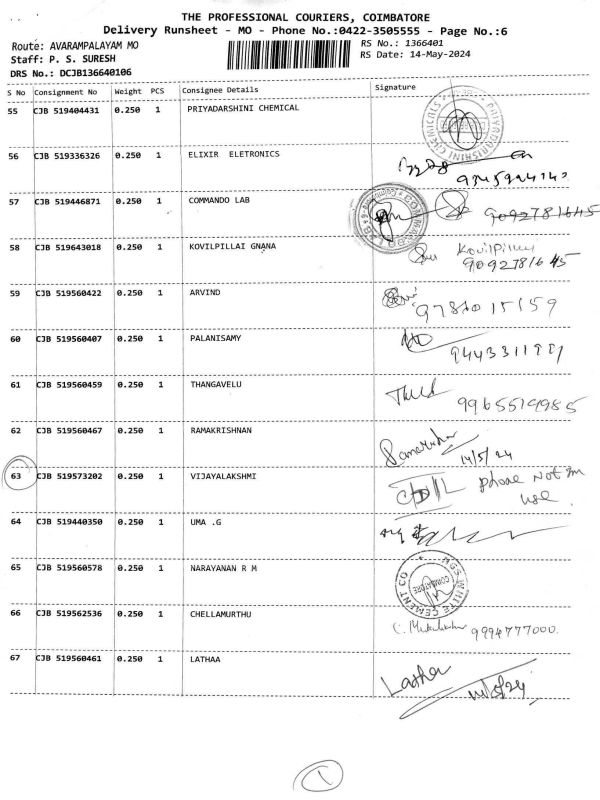 THE PROFESSIONAL COURIERS, COIMBATORE
Delivery Runsheet - MO - Phone No.:0422-3505555 - Page No.:6
Route: AVARAMPALAYAM MO
RS No.: 1366401
Staff: P. S. SURESH
RS Date: 14-May-2024
DRS No.: DCJB136640106
S No Consignment No Weight PCS Consignee Details Signature
55 CJB 519404431 0.250 1 PRIYADARSHINI CHEMICAL
56 CJB 519336326 0.250 1 ELIXIR ELETRONICS
57 CJB 519446871 0.250 1 COMMANDO LAB 9092781645
58 CJB 519643018 0.250 1 KOVILPILLAI GNANA Kovilpillai
9092781645
59 CJB 519560422 0.250 1 ARVIND
60 CJB 519560407 0.250 1 PALANISAMY
61 CJB 519560459 0.250 1 THANGAVELU 9965519985
62 CJB 519560467 0.250 1 RAMAKRISHNAN
14/5/24
63 CJB 519573202 0.250 1 VIJAYALAKSHMI phone Not in
use
64 CJB 519440350 0.250 1 UMA .G
65 CJB 519560578 0.250 1 NARAYANAN R M
MGS WHITE CEMENT CO
COIMBATORE
66 CJB 519562536 0.250 1 CHELLAMURTHU 9994777000
67 CJB 519560461 0.250 1 LATHAA Latha
1